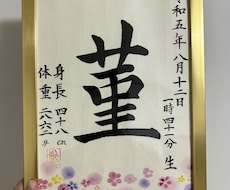 令和五年八月十二日
一時四十一分 生
菫
身長 四十八 cm
体重 二六六二 g